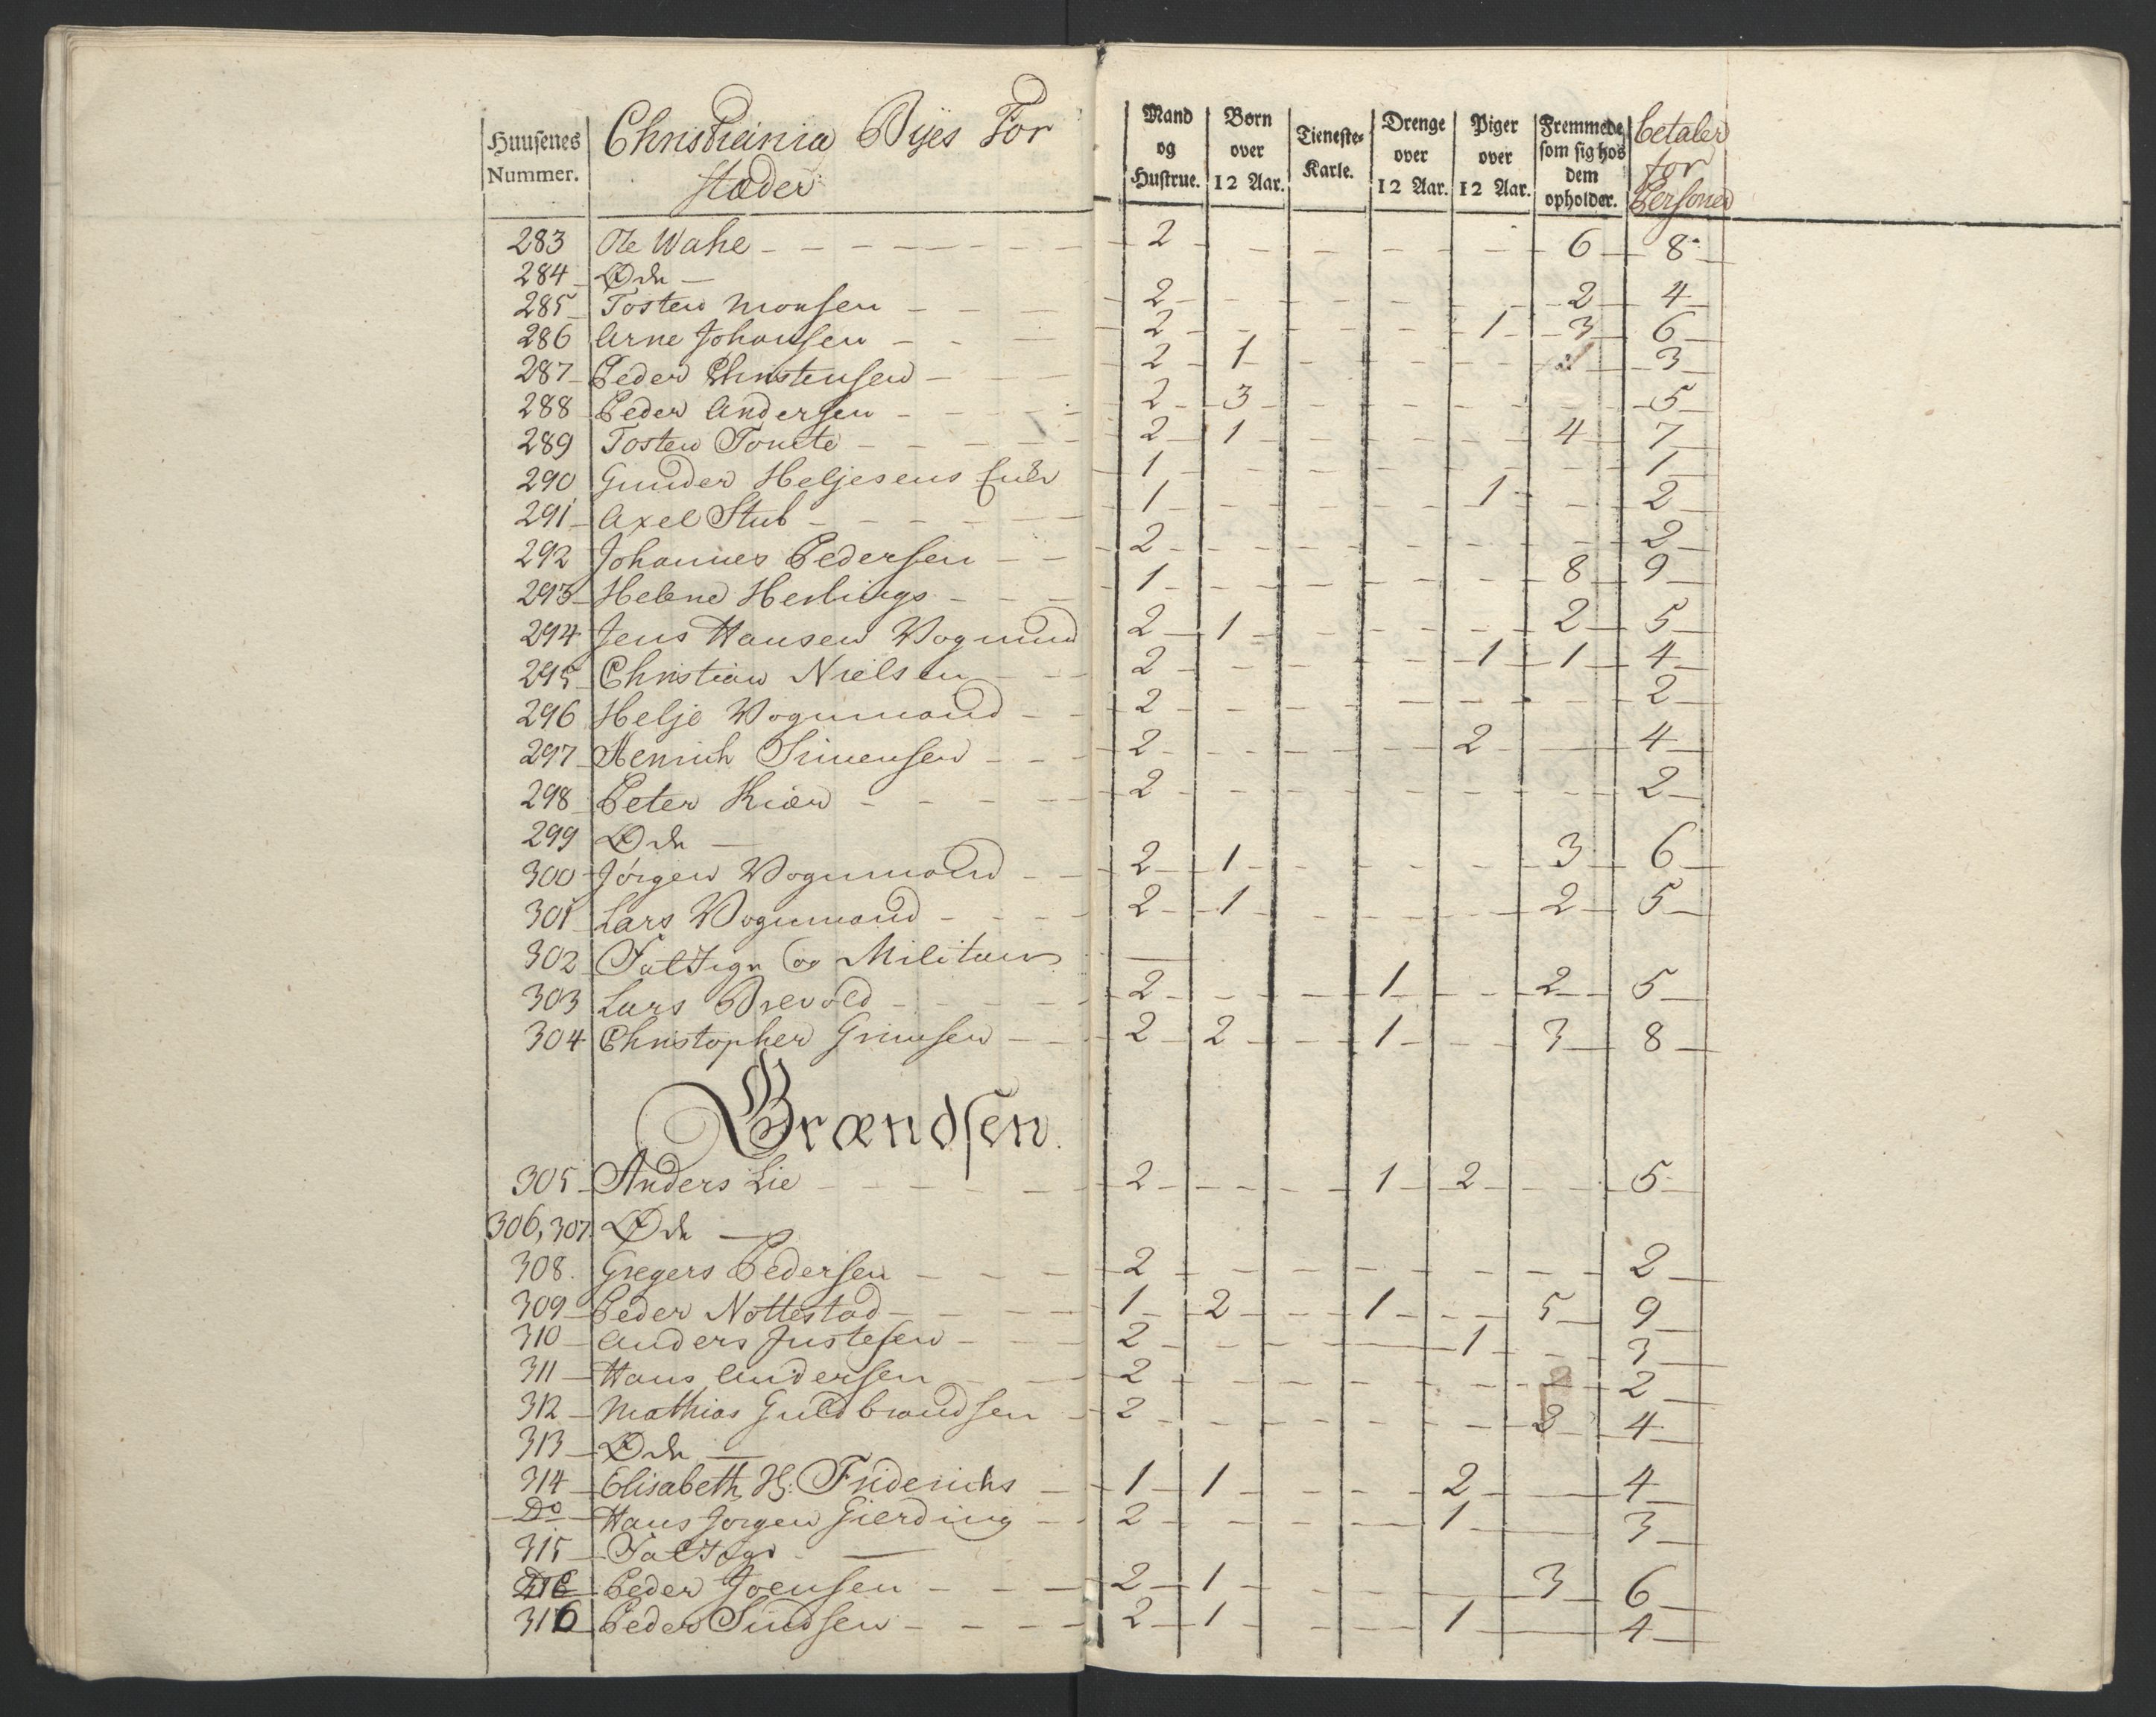 Huusenes Nummer. | Christiania Byes For stæder | Mand og Hustrue. | Børn over 12 Aar. | Tieneste-Karle. | Drenge over 12 Aar. | Piger over 12 Aar. | Fremmede som sig hos dem opholder. | betaler for Personer
283 Ole Wahe - 2 - - - - - 6 - 8
284 Øde -
285 Tosten Monsen - 2 - - - - - 2 - 4
286 Arne Johansen - 2 - - - - 1 - 3 - 6
287 Peder Christensen - 2 - 1 - - - - - 3
288 Peder Andersen - 2 - 3 - - - - - 5
289 Tosten Tomte - 2 - 1 - - - - 4 - 7
290 Gunder Heljesens Enke 1 - - - - - - 1
291 Axel Stub - 1 - - - - 1 - - 2
292 Johannes Pedersen - 2 - - - - - - 2
293 Helene Herlings - 1 - - - - - 8 - 9
294 Jens Hansen Vogmand 2 - 1 - - - - 2 - 5
295 Christian Nielsen - 2 - - - - 1 - 1 - 4
296 Helje Vognmand - 2 - - - - - - 2
297 Henrich Simensen - 2 - - - - 2 - 4
298 Peter Kiær - 2 - - - - - - 2
299 Øde -
300 Jörgen Vognmand - 2 - 1 - - - - 3 - 6
301 Lars Vognmand - 2 - 1 - - - - 2 - 5
302 Fattige og Militair -
303 Lars Brevold - 2 - - - 1 - - 2 - 5
304 Christopher Grimsen - 2 - 2 - - 1 - - 3 - 8
Grændsen.
305 Anders Lie - 2 - - - 1 - 2 - - 5
306, 307. Øde -
308. Gregers Pedersen - 2 - - - - - - 2
309 Peder Nøttestad - 1 - 2 - - 1 - - 5 - 9
310 Anders Justesen - 2 - - - - 1 - - 3
311 Hans Andersen - 2 - - - - - 2
312 Mathias Guldbrandsen - 2 - - - - - 2 - 4
313 Øde -
314 Elisabeth Sl: Friderichs - 1 - 1 - - - 2 - 4
Do Hans Jørgen Gierding - 2 - - - - 1 - 3
315 Fattige -
Peder Joensen - 2 - 1 - - - 3 - 6
316 Peder Sindsen - 2 - 1 - - 1 - 4